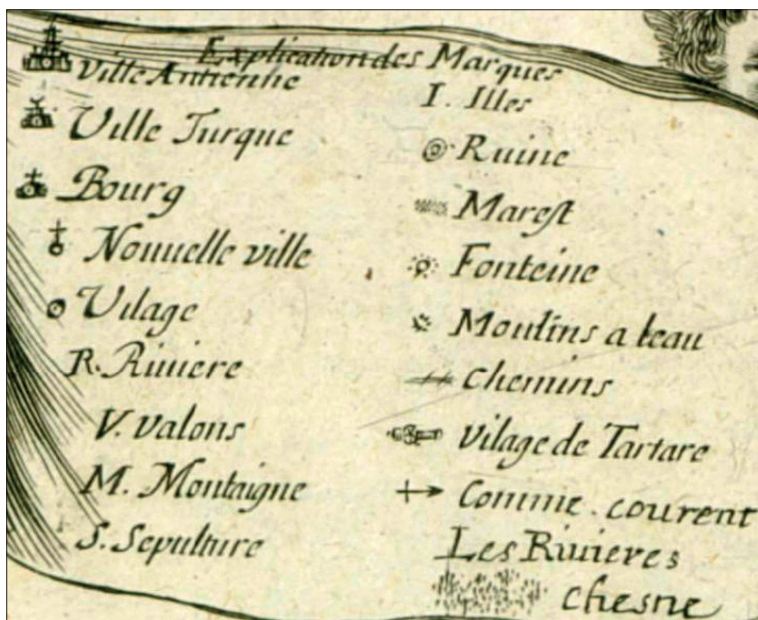 Explication des Marques
Ville Antienne
Ville Turque
Bourg
Nouuelle ville
Vilage
R. Riuiere
V. valons
M. Montaigne
S. Sepulture
I. Illes
Ruine
Marest
Fonteine
Moulins a leau
chemins
vilage de Tartare
Comme courent
Les Riuieres
chesne